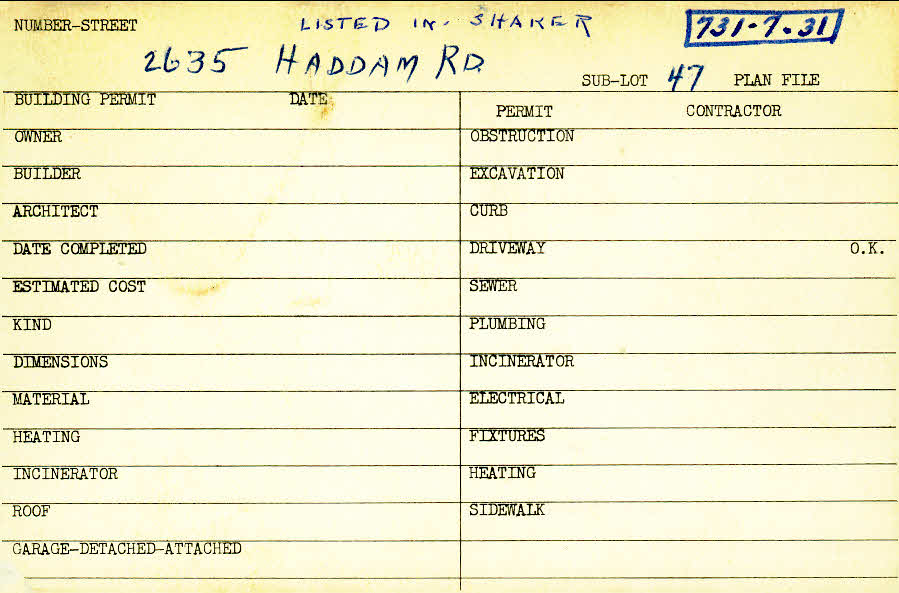 NUMBER-STREET LISTED IN SHAKER 731-7-31
2635 HADDAM RD.
SUB-LOT 47 PLAN FILE
BUILDING PERMIT DATE
PERMIT CONTRACTOR
OWNER OBSTRUCTION
BUILDER EXCAVATION
ARCHITECT CURB
DATE COMPLETED DRIVEWAY O.K.
ESTIMATED COST SEWER
KIND PLUMBING
DIMENSIONS INCINERATOR
MATERIAL ELECTRICAL
HEATING FIXTURES
INCINERATOR HEATING
ROOF SIDEWALK
GARAGE-DETACHED-ATTACHED